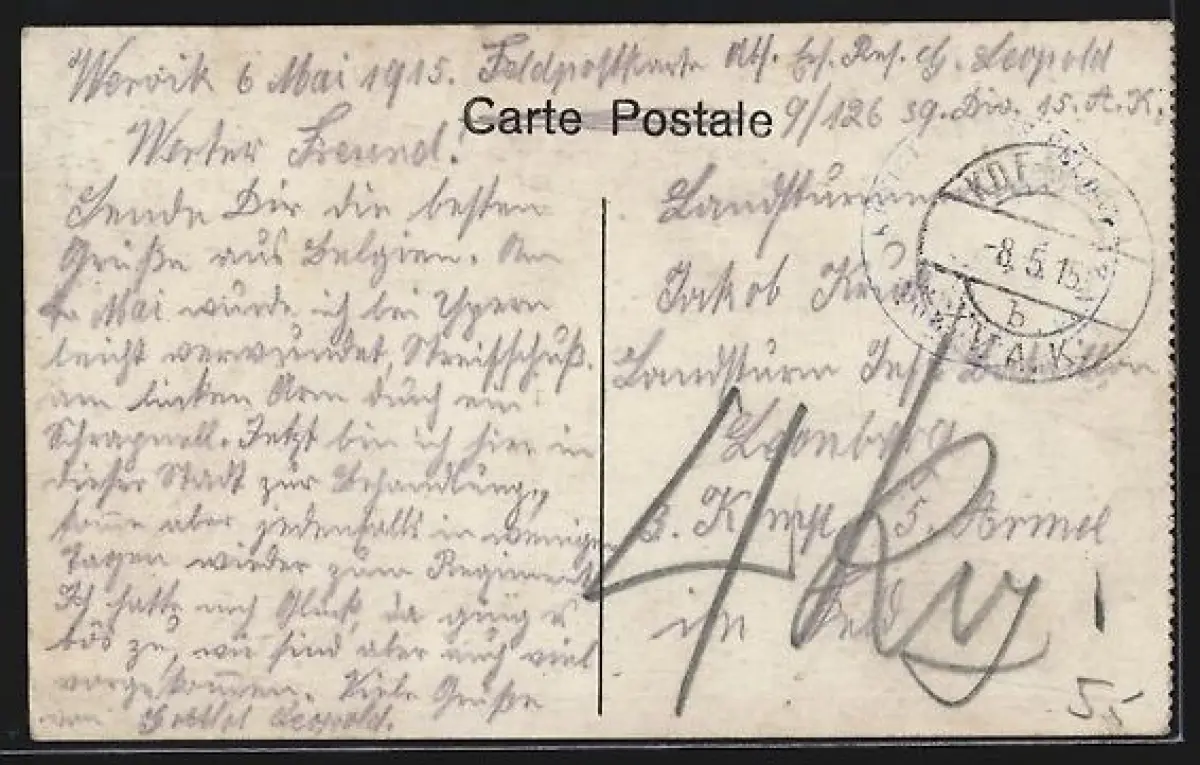 Wervik 6 Mai 1915. Feldpostkarte Abs. Ers. Res. G. Leopold
9/126 39. Div. 15. A.K.
Carte Postale
Werter Freund!
Sende Dir die besten
Grüße aus Belgien. Am
Mai wurde ich bei Ypern
leicht verwundet, Streifschuß
am linken Arm durch ein
Schrapnell. Jetzt bin ich hier in
dieser Stadt zur Behandlung,
komme aber jedenfalls in wenigen
Tagen wieder zum Regiment
Ich hatte noch Glück, da ging es
bös zu, wir sind aber auch viel
vorgekommen. Viele Grüße
von Gottlob Leopold.
Landsturmm
Jakob
Landsturm Inf. Bataillon
Leonberg
3. Komp. 5. Armee
im Feld
-8.5.15
b
4
55